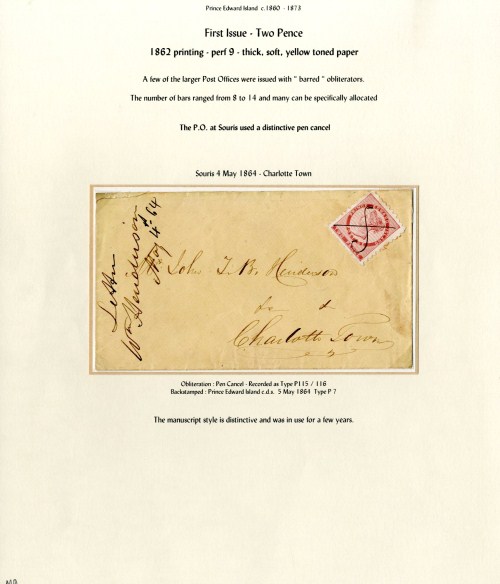 Prince Edward Island c.1860 - 1873
First Issue - Two Pence
1862 printing - perf 9 - thick, soft, yellow toned paper
A few of the larger Post Offices were issued with " barred " obliterators.
The number of bars ranged from 8 to 14 and many can be specifically allocated
The P.O. at Souris used a distinctive pen cancel
Souris 4 May 1864 - Charlotte Town
Letter
Wm Henderson
May 4th 64
John T. B. Henderson
Charlotte Town
Obliteration : Pen Cancel - Recorded as Type P115 / 116
Backstamped : Prince Edward Island c.d.s. 5 May 1864 Type P 7
The manuscript style is distinctive and was in use for a few years.